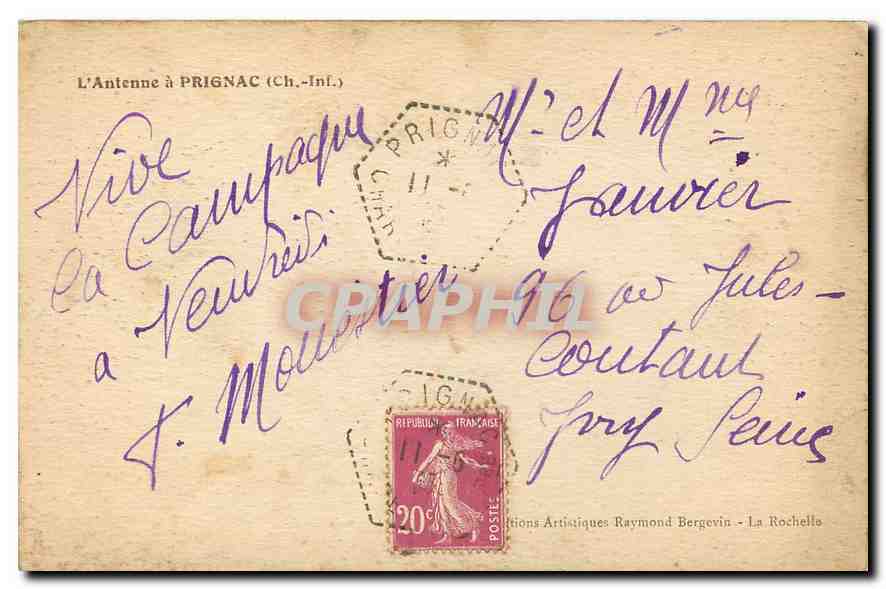 L'Antenne à PRIGNAC (Ch.-Inf.)
Vive
la Campagne
a Vendredi
F. Monestier
Mr et Mme
Janvier
96 av Jules-
Coutant
Ivry Seine
PRIGN
CHAR
11 -
CPAPHIL
PRIGN
11 -6
REPUBLIQUE FRANÇAISE
20c
POSTES
tions Artistiques Raymond Bergevin - La Rochelle